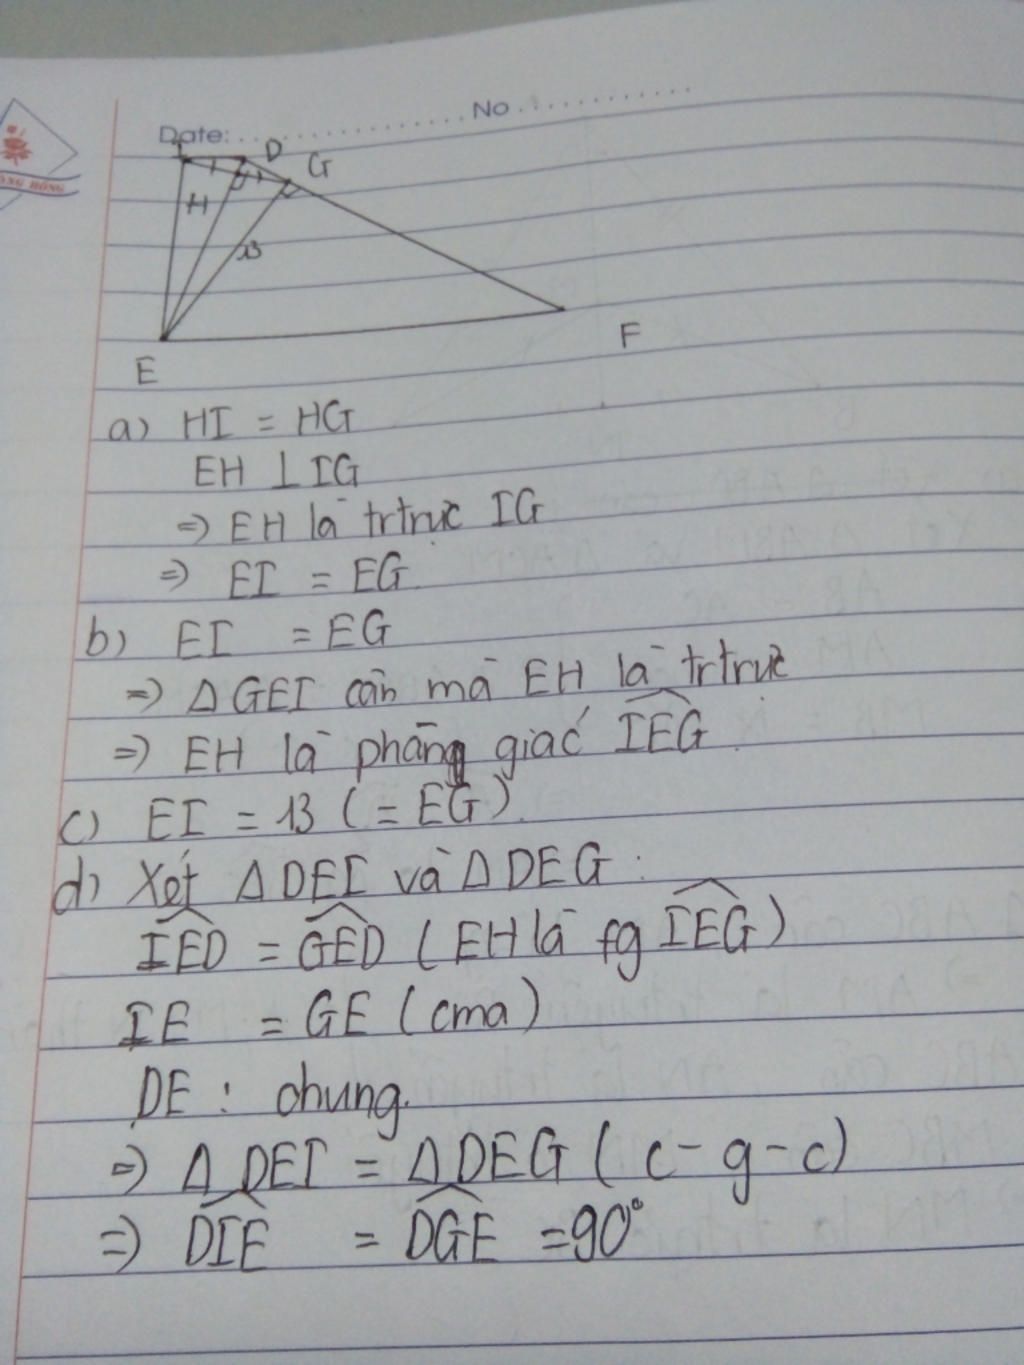 No
Date:
ÔNG HỒNG
I D G
H
13
E F
a) HI = HG
EH ⊥ IG
=> EH là trtrực IG
=> EI = EG.
b) EI = EG
=> Δ GEI cân mà EH là trtrực
=> EH là phâng giác IEG.
c) EI = 13 ( = EG).
d) Xét Δ DEI và Δ DEG :
IED = GED ( EH là fg IEG )
IE = GE ( cma )
DE : chung.
=> Δ DEI = Δ DEG ( c - g - c )
=> DIE = DGE = 90°